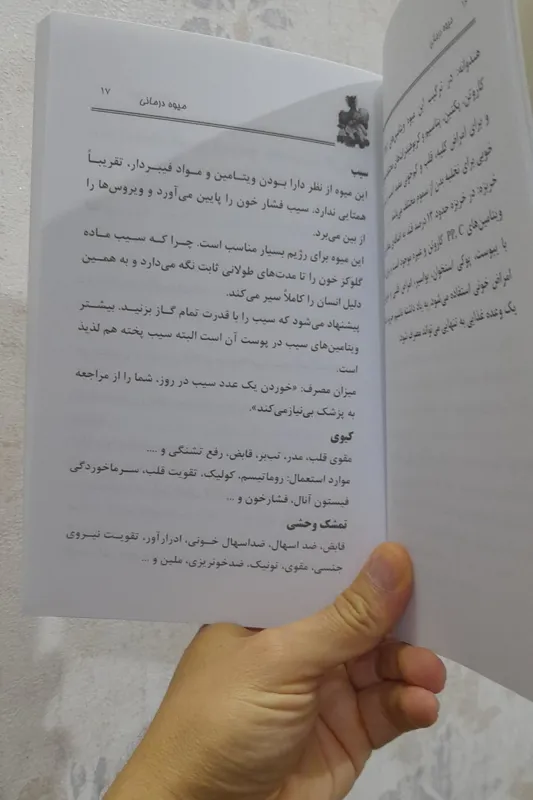 میوه درمانی ۱۷
سیب
این میوه از نظر دارا بودن ویتامین و مواد فیبردار، تقریباً
همتایی ندارد. سیب فشار خون را پایین می‌آورد و ویروس‌ها را
از بین می‌برد.
این میوه برای رژیم بسیار مناسب است. چرا که سیب ماده
گلوکز خون را تا مدت‌های طولانی ثابت نگه می‌دارد و به همین
دلیل انسان را کاملاً سیر می‌کند.
پیشنهاد می‌شود که سیب را با قدرت تمام گاز بزنید. بیشتر
ویتامین‌های سیب در پوست آن است البته سیب پخته هم لذیذ
است.
میزان مصرف: «خوردن یک عدد سیب در روز، شما را از مراجعه
به پزشک بی‌نیاز می‌کند».
کیوی
مقوی قلب، مدر، تب‌بر، قابض، رفع تشنگی و ....
موارد استعمال: روماتیسم، کولیک، تقویت قلب، سرماخوردگی
فیستون آنال، فشارخون و ...
تمشک وحشی
قابض، ضد اسهال، ضداسهال خونی، ادرارآور، تقویت نیروی
جنسی، مقوی، تونیک، ضدخونریزی، ملین و ...
میوه درمانی
هندوانه: در ترکیب این میوه ویتامین‌های
کاروتن، پکتین، پتاسیم و
و برای امراض کلیه، قلب و
خوبی برای تخلیه بدن از سموم مختلف می‌باشد.
خربزه: در خربزه حدود ۱۳ درصد قند،
ویتامین‌های PP، C کاروتن و غیره موجود است
یا یبوست، پوکی استخوان، بواسیر،
امراض خونی استفاده می‌شود. به یاد داشته باشیم
یک وعده غذایی به تنهایی می‌تواند مصرف شود.